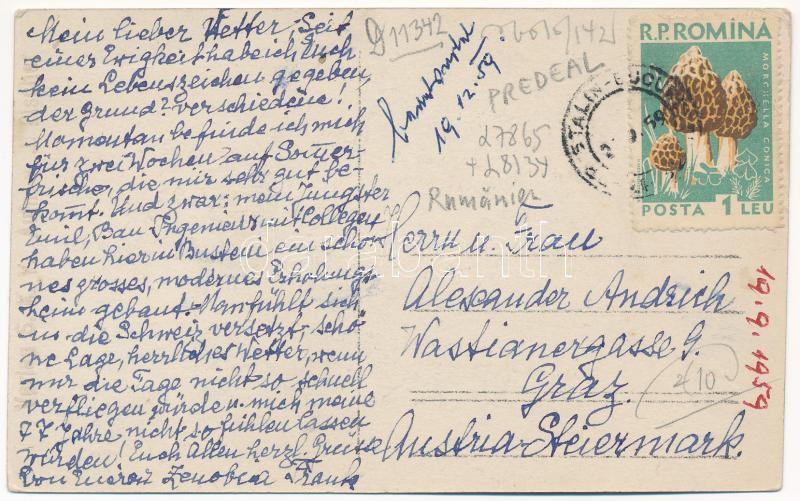 Mein lieber Vetter, Seit
einer Ewigkeit habe ich Euch
kein Lebenszeichen gegeben,
der grund? verschiedene!
Momentan befinde ich mich
für zwei Wochen auf Somer-
frische, die mir sehr gut be-
komt. Und zwar: mein Jungster
Emil, Bau Ingenieur mit Collegen
haben hier in Busteni ein schö-
nes grosses, modernes Erholungs-
heim gebaut. Man fühlt sich
in die Schweiz versetzt, schö-
ne Lage, herrliches Wetter, wenn
mir die Tage nicht so schnell
verfliegen würden u. mich meine
77 Jahre nicht so fühlen lassen
würden! Euch Allen herzl. Grüsse
von Eurer Zenobia Frank
D 11342
19.12.59
PREDEAL
27865
+ 28134
Rumänien
R.P.ROMÎNĂ
MORCHELLA CONICA
POSTA 1 LEU
Herrn u. Frau
Alexander Andrich
Wastianergasse 9.
Graz
Austria-Steiermark.
210
19.9.1959
darabanth